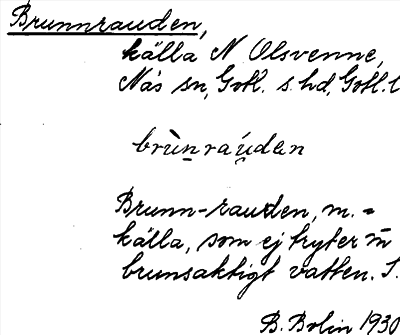 Brunnrauden,
källa N Olsvenne,
Näs sn, Gotl. s. hd, Gotl. l
brùn̲ráu̲dan
Brunn-rauden, m. =
källa, som ej tryter m
brunsaktigt vatten. S.
B. Bolin 1930